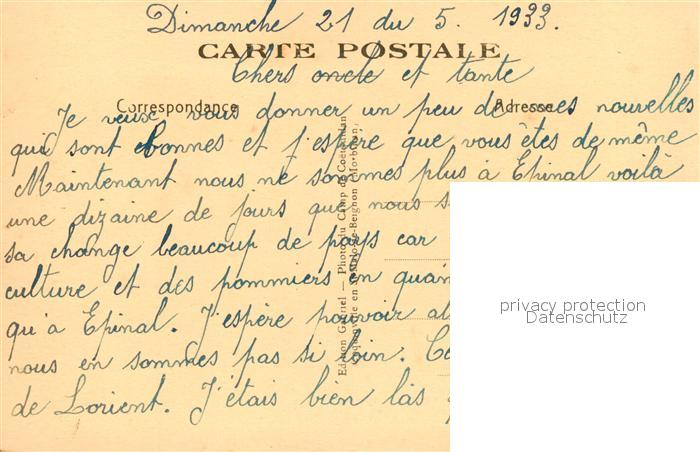 Dimanche 21 du 5. 1933.
CARTE POSTALE
Chers oncle et tante
Correspondance
Adresse
Je veux vous donner un peu de mes nouvelles
qui sont bonnes et j'espère que vous êtes de même
Maintenant nous ne sommes plus à Epinal voilà
une dizaine de jours que nous s
sa change beaucoup de pays car
culture et des pommiers en quan
qu'à Epinal. J'espère pouvoir al
nous en sommes pas si loin. Ca
de Lorient. J'étais bien làs
Edition Gabriel — Photo du Camp de Coëtquidan
privacy protection
Datenschutz